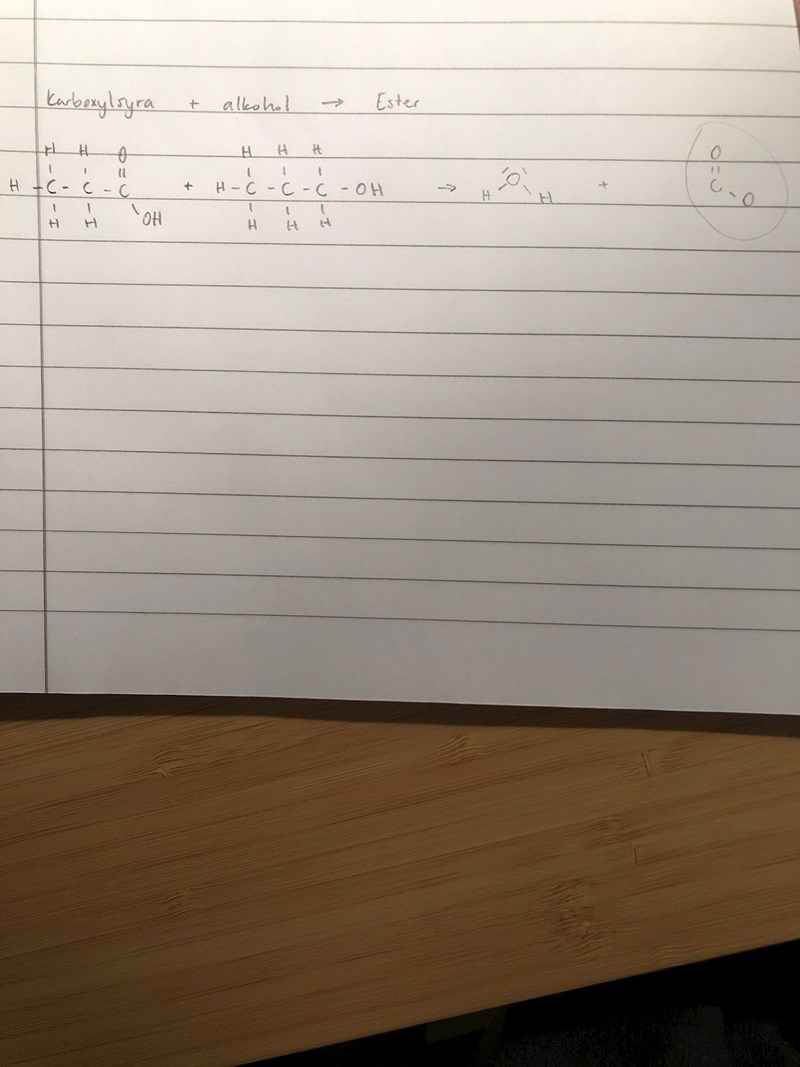 Karboxylsyra + alkohol → Ester
H H O H H H O
H - C - C - C + H - C - C - C - OH → H O H + C
H H OH H H H O